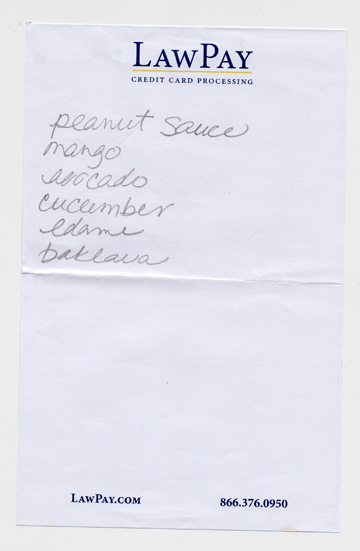 LAWPAY
CREDIT CARD PROCESSING
peanut sauce
mango
avocado
cucumber
edame
baklava
LAWPAY.COM
866.376.0950